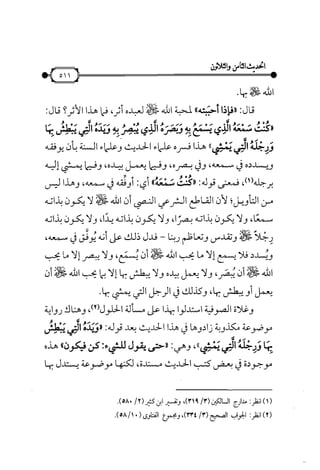 الحديث الثامن والثلاثون
٥١١
الله ﷺ بها.
قال: «فإذا أحببته» لمحبة الله ﷺ لعبده أثر، فما هذا الأثر؟ قال:
«كُنْتُ سَمْعَهُ الَّذِي يَسْمَعُ بِهِ وَبَصَرَهُ الَّذِي يُبْصِرُ بِهِ وَيَدَهُ الَّتِي يَبْطِشُ بِهَا
وَرِجْلَهُ الَّتِي يَمْشِي» هذا فسره علماء الحديث وعلماء السنة بأن يوفقه
ويسدده في سمعه، وفي بصره، وفيما يعمل بيده، وفيما يمشي إليه
برجله(١)، فمعنى قوله: «كُنْتُ سَمْعَهُ» أي: أوفِّقه في سمعه، وهذا ليس
من التأويل؛ لأن القاطع الشرعي النصي أن الله ﷺ لا يكون بذاته
سمعًا، ولا يكون بذاته بصرًا، ولا يكون بذاته يدًا، ولا يكون بذاته
رِجلًا ﷺ وتقدس وتعاظم ربنا - فدل ذلك على أنه يُوفَّق في سمعه،
ويُسدد فلا يسمع إلا ما يحب الله ﷺ أن يُسمع، ولا يبصر إلا ما يحب
الله ﷺ أن يُبصر، ولا يعمل بيده ولا يبطش بها إلا بما يحب الله ﷺ أن
يعمل أو يبطش بها، وكذلك في الرجل التي يمشي بها.
وغلاة الصوفية استدلوا بهذا على مسألة الحلول(٢)، وهناك رواية
موضوعة مكذوبة زادوها في هذا الحديث بعد قوله: «وَيَدَهُ الَّتِي يَبْطِشُ
بِهَا وَرِجْلَهُ الَّتِي يَمْشِي»، وهي: «حتى يقول للشيء: كن فيكون» هذه
موجودة في بعض كتب الحديث مسندة، لكنها موضوعة يستدل بها
(١) انظر: مدارج السالكين (٣/ ٣١٩)، وتفسير ابن كثير (٢/ ٥٨٠).
(٢) انظر: الجواب الصحيح (٣/ ٣٣٤)، ومجموع الفتاوى (١٠/ ٥٨).